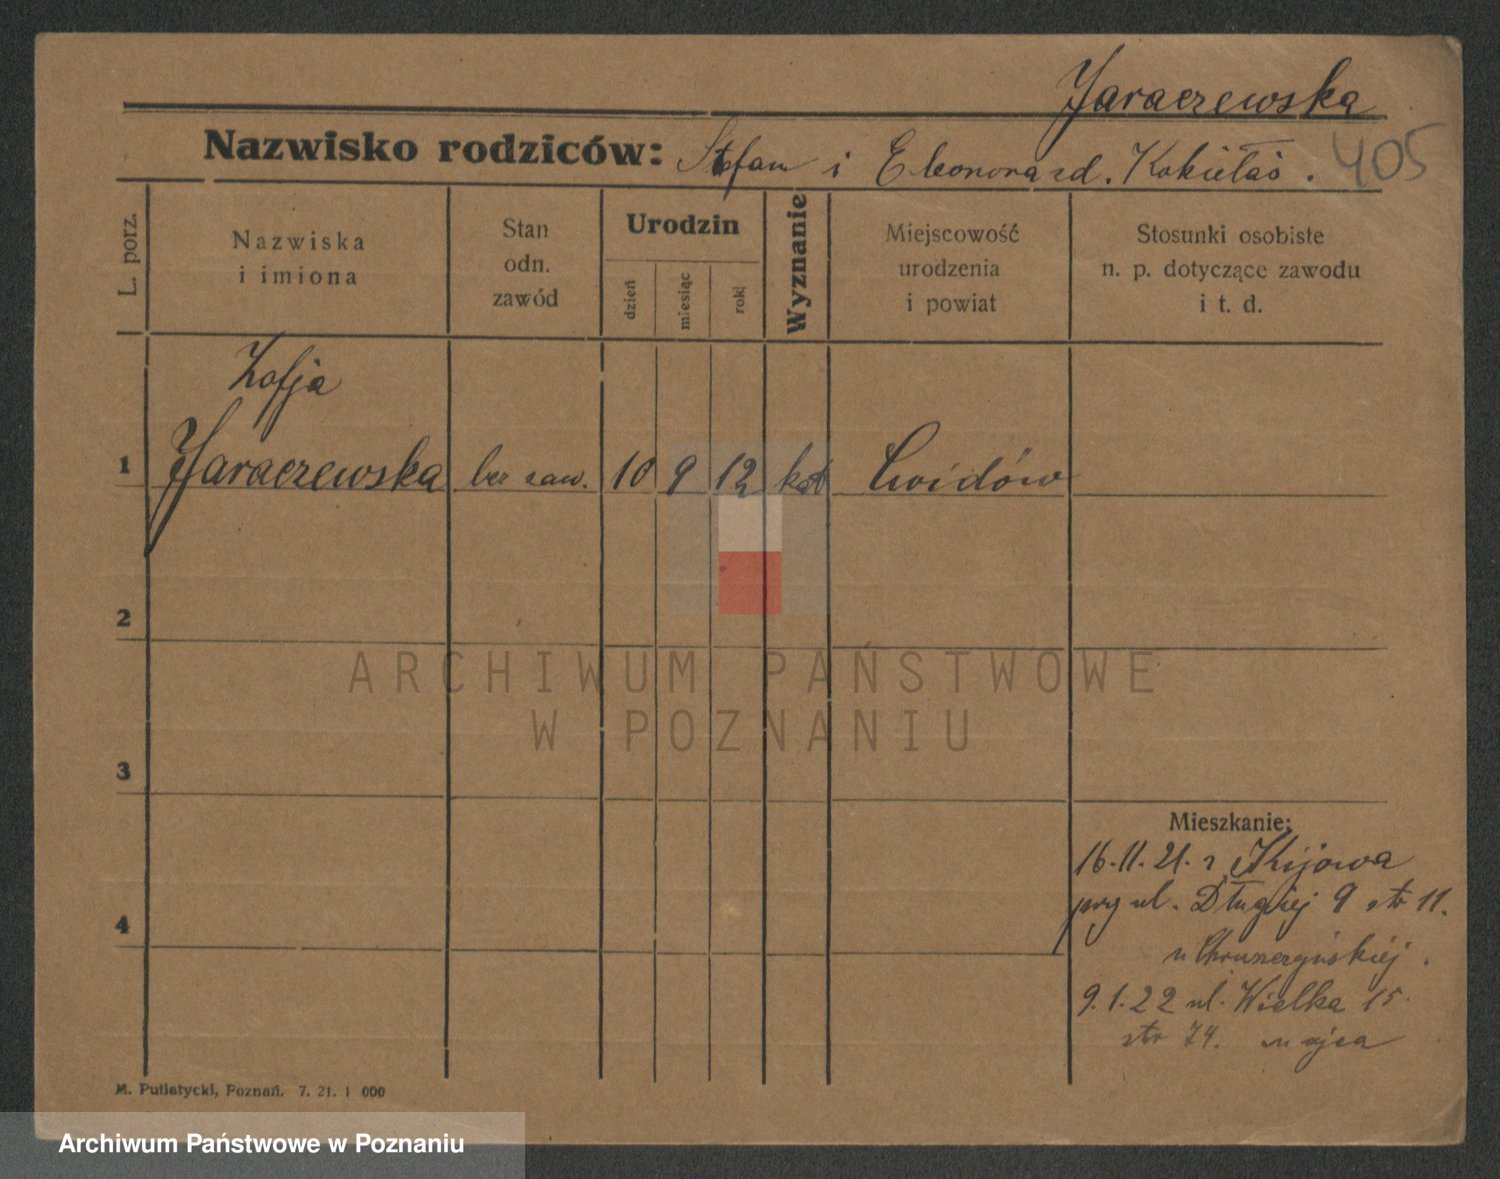 Jaraczewska
Nazwisko rodziców: Stefan i Eleonora zd. Kokiełaś. 405
L. porz.
Nazwiska
i imiona
Stan
odn.
zawód
Urodzin
dzień
miesiąc
rok
Wyznanie
Miejscowość
urodzenia
i powiat
Stosunki osobiste
n. p. dotyczące zawodu
i t. d.
Zofja
1 Jaraczewska bez zaw. 10 9 12 kat
2
3
4
Mieszkanie:
16.11.21. z Kijowa
przy ul. Długiej 9 str 11.
u
9.1.22 ul. Wielka 15.
str 74. u ojca
M. Putiatycki, Poznań. 7. 21. 1 000
ARCHIWUM PAŃSTWOWE
W POZNANIU
Archiwum Państwowe w Poznaniu